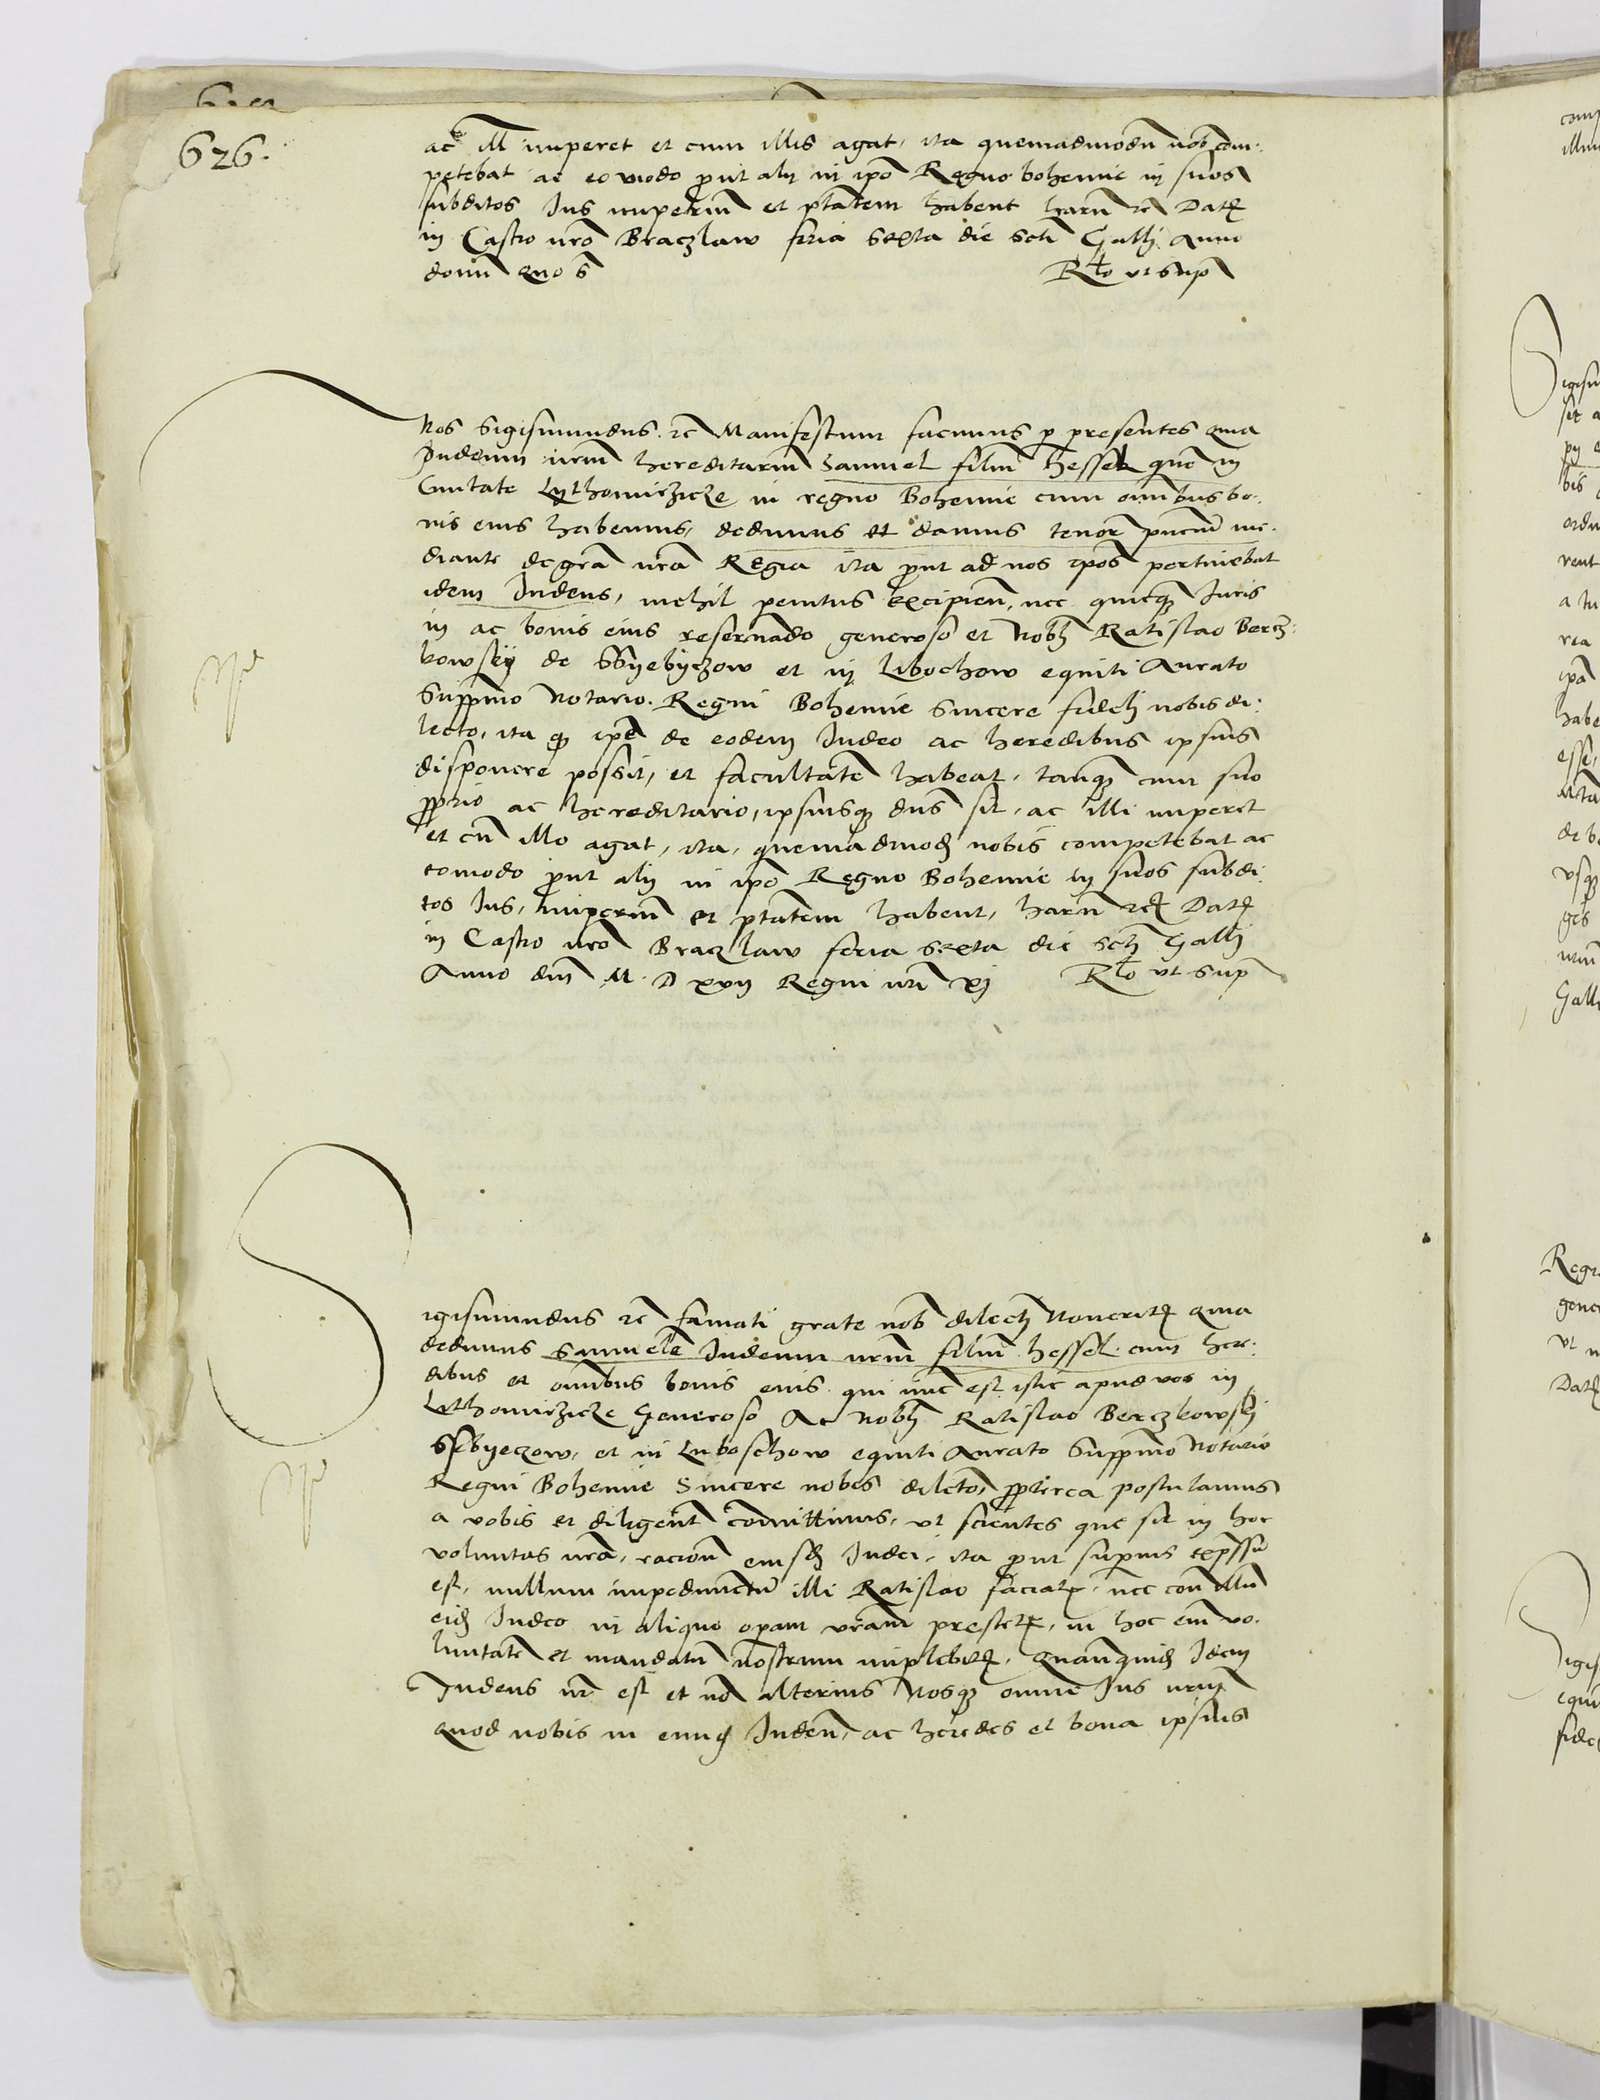 626.
ac ill imperet et cum illis agat, ita quemadmodũ nob com:
petebat ac eo modo prout alij in ipõ Regno bohemie in suos
subditos Ius imperiũ et ptãtem habent harũ rc̃ Datꝫ
in Castro nrõ Braczlaw feria sexta die scti Galli Anno
domĩ quo s̃
Rt̃o vt sup̃
Nos Sigismundus rc̃ Manifestum facimus p presentes quia
Iudeum nrm̃ hereditariũ Samuel filiũ hessel quẽ in
Ciuitate Lythomirzicze in regno Bohemie cum omĩbus bo:
nis eius habemus, dedimus et damus tenorẽ pñtium me:
diante de gra nra Regia ita prout ad nos ipõs pertinebat
idem Iudeus, nichil penitus excipien̄, nec quicqꝫ Iuris
in ac bonis eius reseruãdo generoso et Nobli Ratislao Bercz:
kowsky de Ssyebyczow et in Libochow equiti Aurato
Supp̃mo Notario Regni Bohemie sincere fideli nobis di:
lecto, ita qꝫ ipẽ de eodem Iudeo ac heredibus ipsius
disponere possit, et facultatẽ habeat, tanqꝫ cum suo
pprio ac hereditario, ipsiusqꝫ dñs sit, ac illi imperet
et cũ illo agat, ita, quemadmodꝫ nobis competebat ac
eomodo prout alij in ipõ Regno Bohemie in suos subdi:
tos Ius, imperiũ et ptãtem habent, harũ rc̃ Datꝫ
in Castro nrõ Braczlaw feria sexta die scti Galli
Anno dñi M. D xvij Regni nrĩ xj
Rt̃o vt sup̃
Sigismundus rc̃ famati grate nob dilecti Noueritꝫ quia
dedimus Samuelẽ Iudeum nrm̃ filiũ hessel cum here:
dibus et omĩbus bonis euis qui nũc est istic apud vos in
Lythomirzicze Generoso Ac Nobli Ratislao Berczkowski
Ssbyeczow, et in Luboschow equiti Aurato Supp̃mo Notario
Regni Bohemie Sincere nobis dilcto, ppterea postulamus
a vobis et diligent̃ comittimus, vt scientes que sit in hoc
voluntas nra, racioñ eiusdꝫ Iudei, ita prout superius exp̃ssũ
est, nullum impedimentũ illi Ratislao faciatꝫ, nec con illũ
eidꝫ Iudeo in aliquo opam vram prestetꝫ, in hoc em̃ vo:
luntatẽ et mandatũ nostrum implebitꝫ, Quanquidꝫ Idem
Iudeus nr̃ est et nõ alterius Nosqꝫ omne Ius nrm̃
quod nobis in eundꝫ Iudeũ, ac heredes et bona ipsius